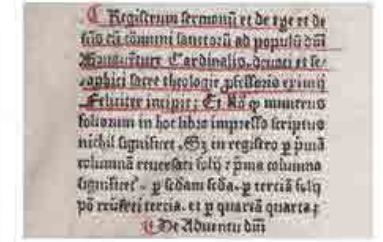 Registrum sermonũ et de tp̄e et de
scīs cũ cōmuni sanctorũ ad populũ dñi
Cardinalis, deuoti et se-
raphici sacre theologie ꝓfessoris eximij
Feliciter incipit: Et
foliorum in hoc libro impresso scriptus
nichil significet. Sz in registro ꝑ pͥmã
columnã reuersati folij: pͥma columna
significet. ꝑ scđam scđa. ꝑ terciã folij
tercia. et ꝑ quartã quarta:
De Aduentu dñi